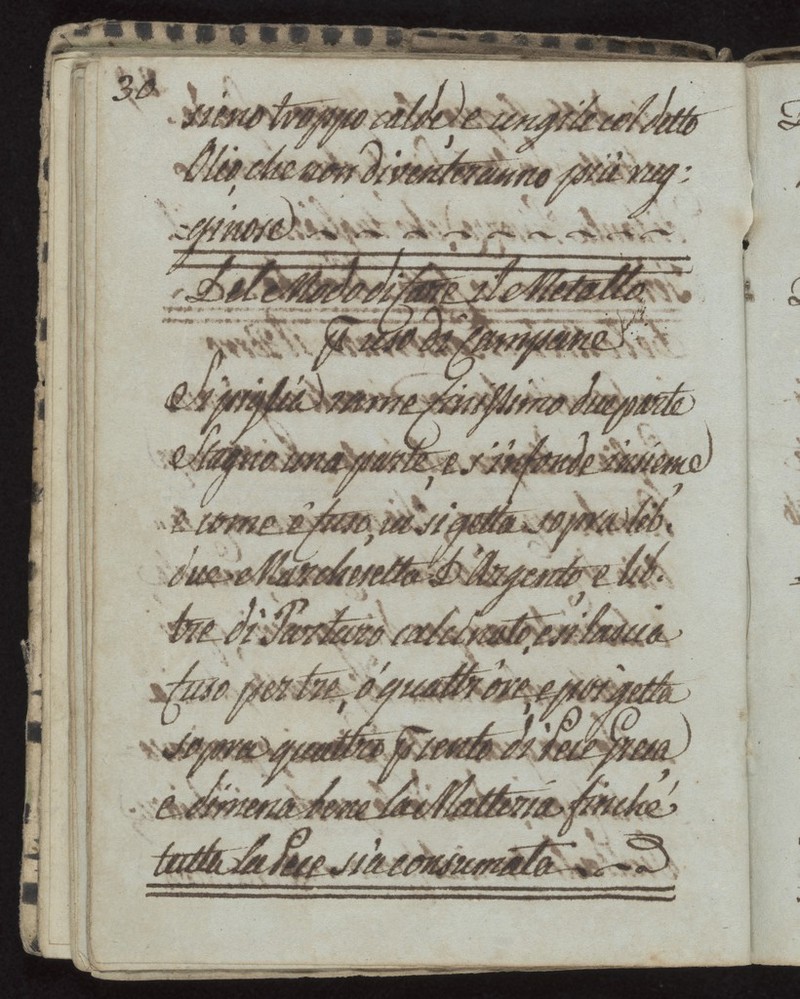 30
sieno troppo calde, e ungile col detto
Olio, che non diventeranno più rug:
ginose
Del Modo di fare il Metallo
p uso di Campane
Si piglia rame finissimo due parte
Stagno una parte, e s'infonde insieme
e come è fuso, vi si getta sopra lib.
due Marchesetta d'Argento, e lib.
tre di Tartaro calcinato, e si lascia
fuso per tre, ò quattr'ore, e poi getta
sopra quattro p cento di Pece Greca
e dimena bene la Matteria finché
tutta la Pece sia consumata